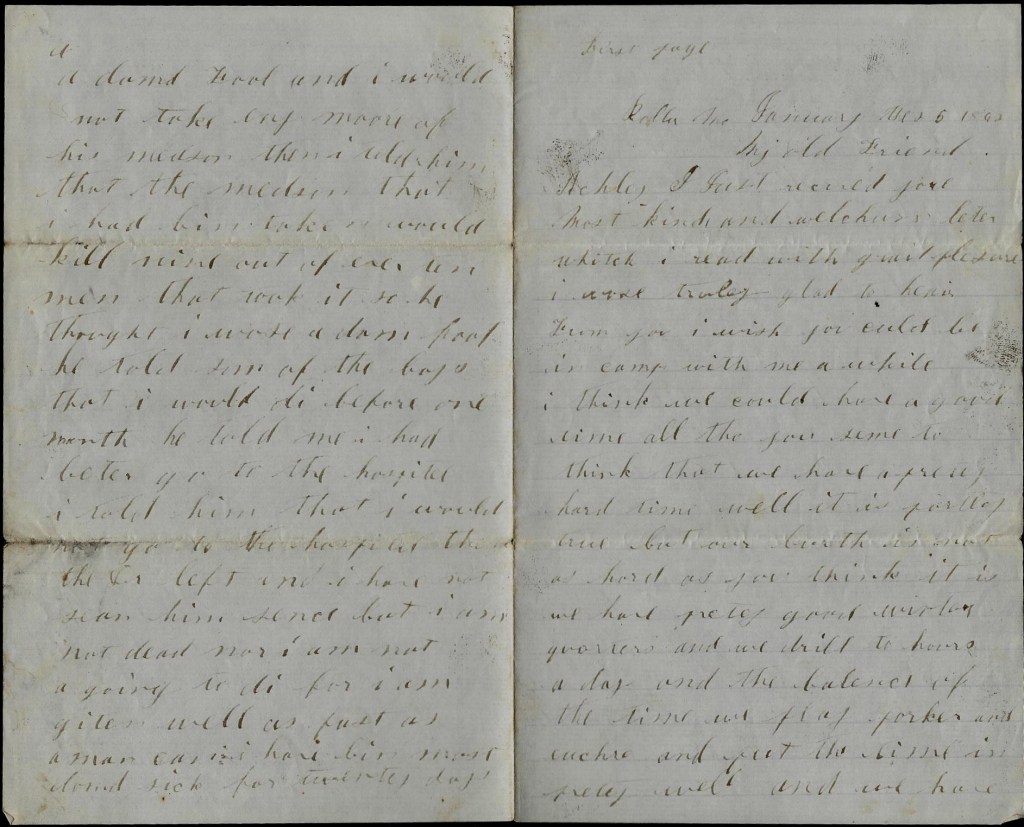 a
a damd Fool and i would
not take eny moore of
his medson then i told him
that the medson that
i had bin taken would
kill nine out of ever ten
men that took it so he
thought i wose a dam fool
he told som of the boys
that i would di before one
month he told me i had
beter go to the hospitel
i told him that i would
not go to the hospitel then
the Dr left and i have not
sean him sence but i am
not dead nor i am not
a going to di for i am
giten well as fast as
a man can i have bin most
domd sick for twentey days
First page
Rolla Mo January
My old Friend
I Just recived yore
Most kind and welchum leter
whitch i read with grait plesure
i wose truley glad to hear
From you i wish you culd be
in camp with me a while
i think we could have a good
time all tho you seme to
think that we have a pretey
hard time well it is partley
true but our burth is not
as hard as you think it is
we have pretey good wintor
quorters and we drill to hours
a day and the balence of
the time we play porker and
euchre and put the time in
pretey well and we have